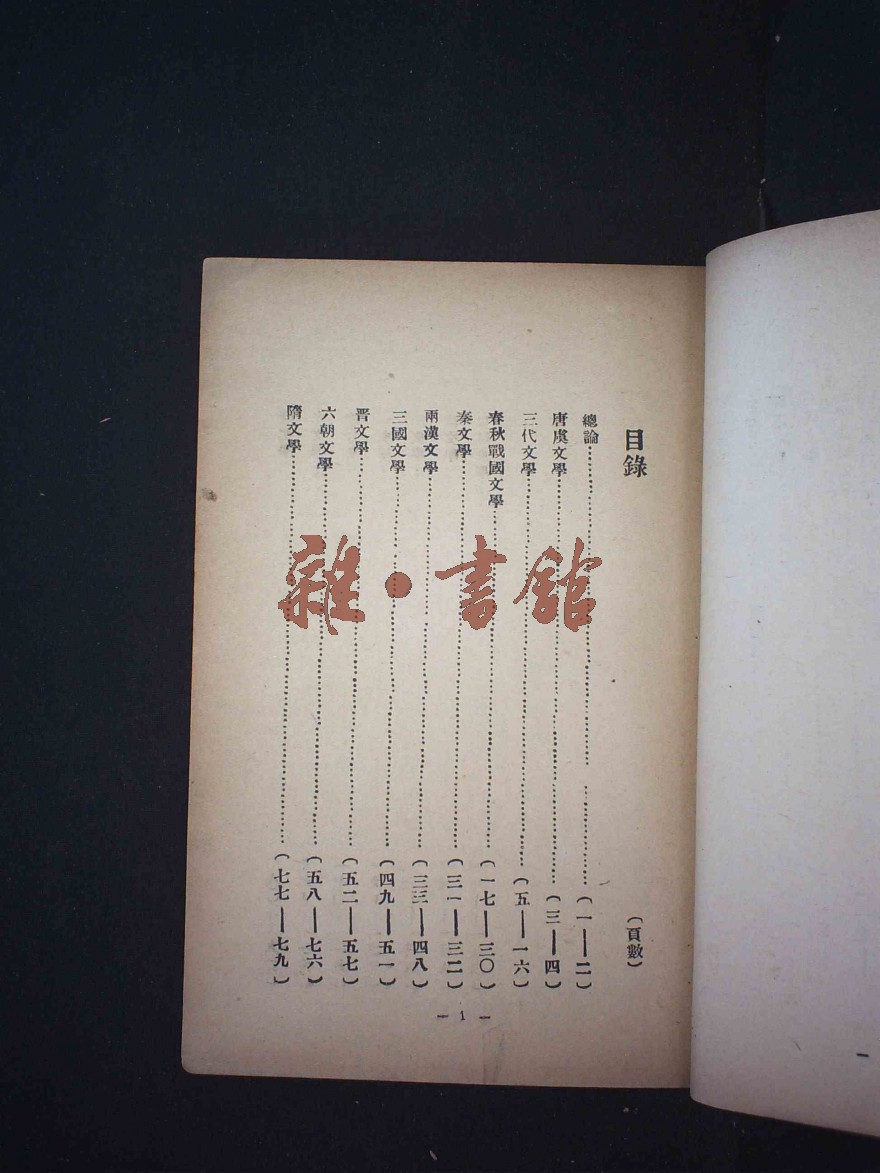 目錄 (頁數)
總論……(一——二)
唐虞文學……(三——四)
三代文學……(五——一六)
春秋戰國文學……(一七——三〇)
秦文學……(三一——三二)
兩漢文學……(三三——四八)
三國文學……(四九——五一)
晋文學……(五二——五七)
六朝文學……(五八——七六)
隋文學……(七七——七九)
— 1 —
雜·書館